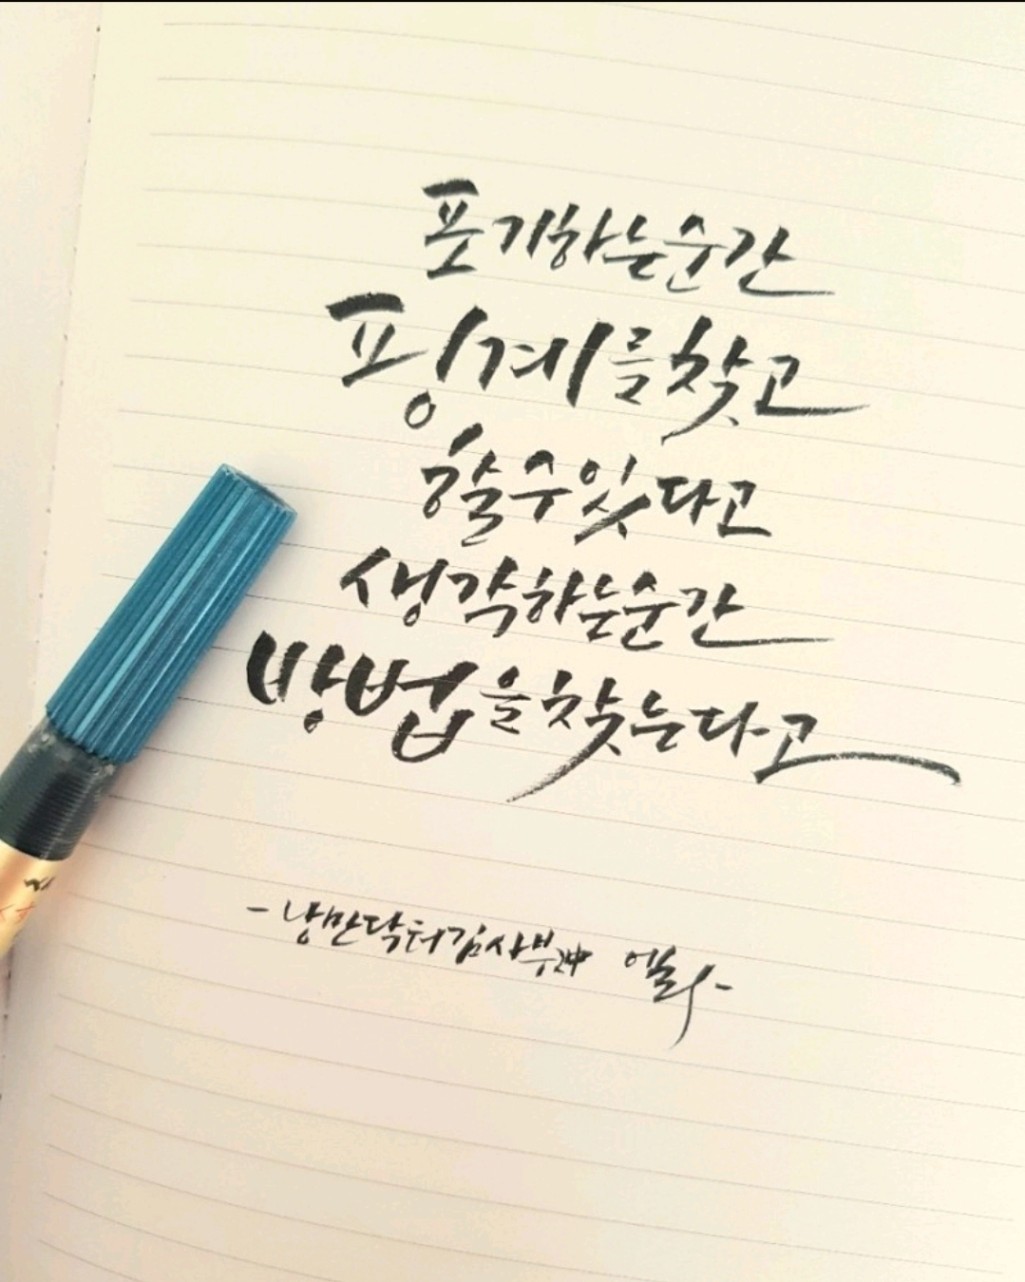 포기하는순간
핑계를찾고
할수있다고
생각하는순간
방법을찾는다고
- 낭만닥터김사부中